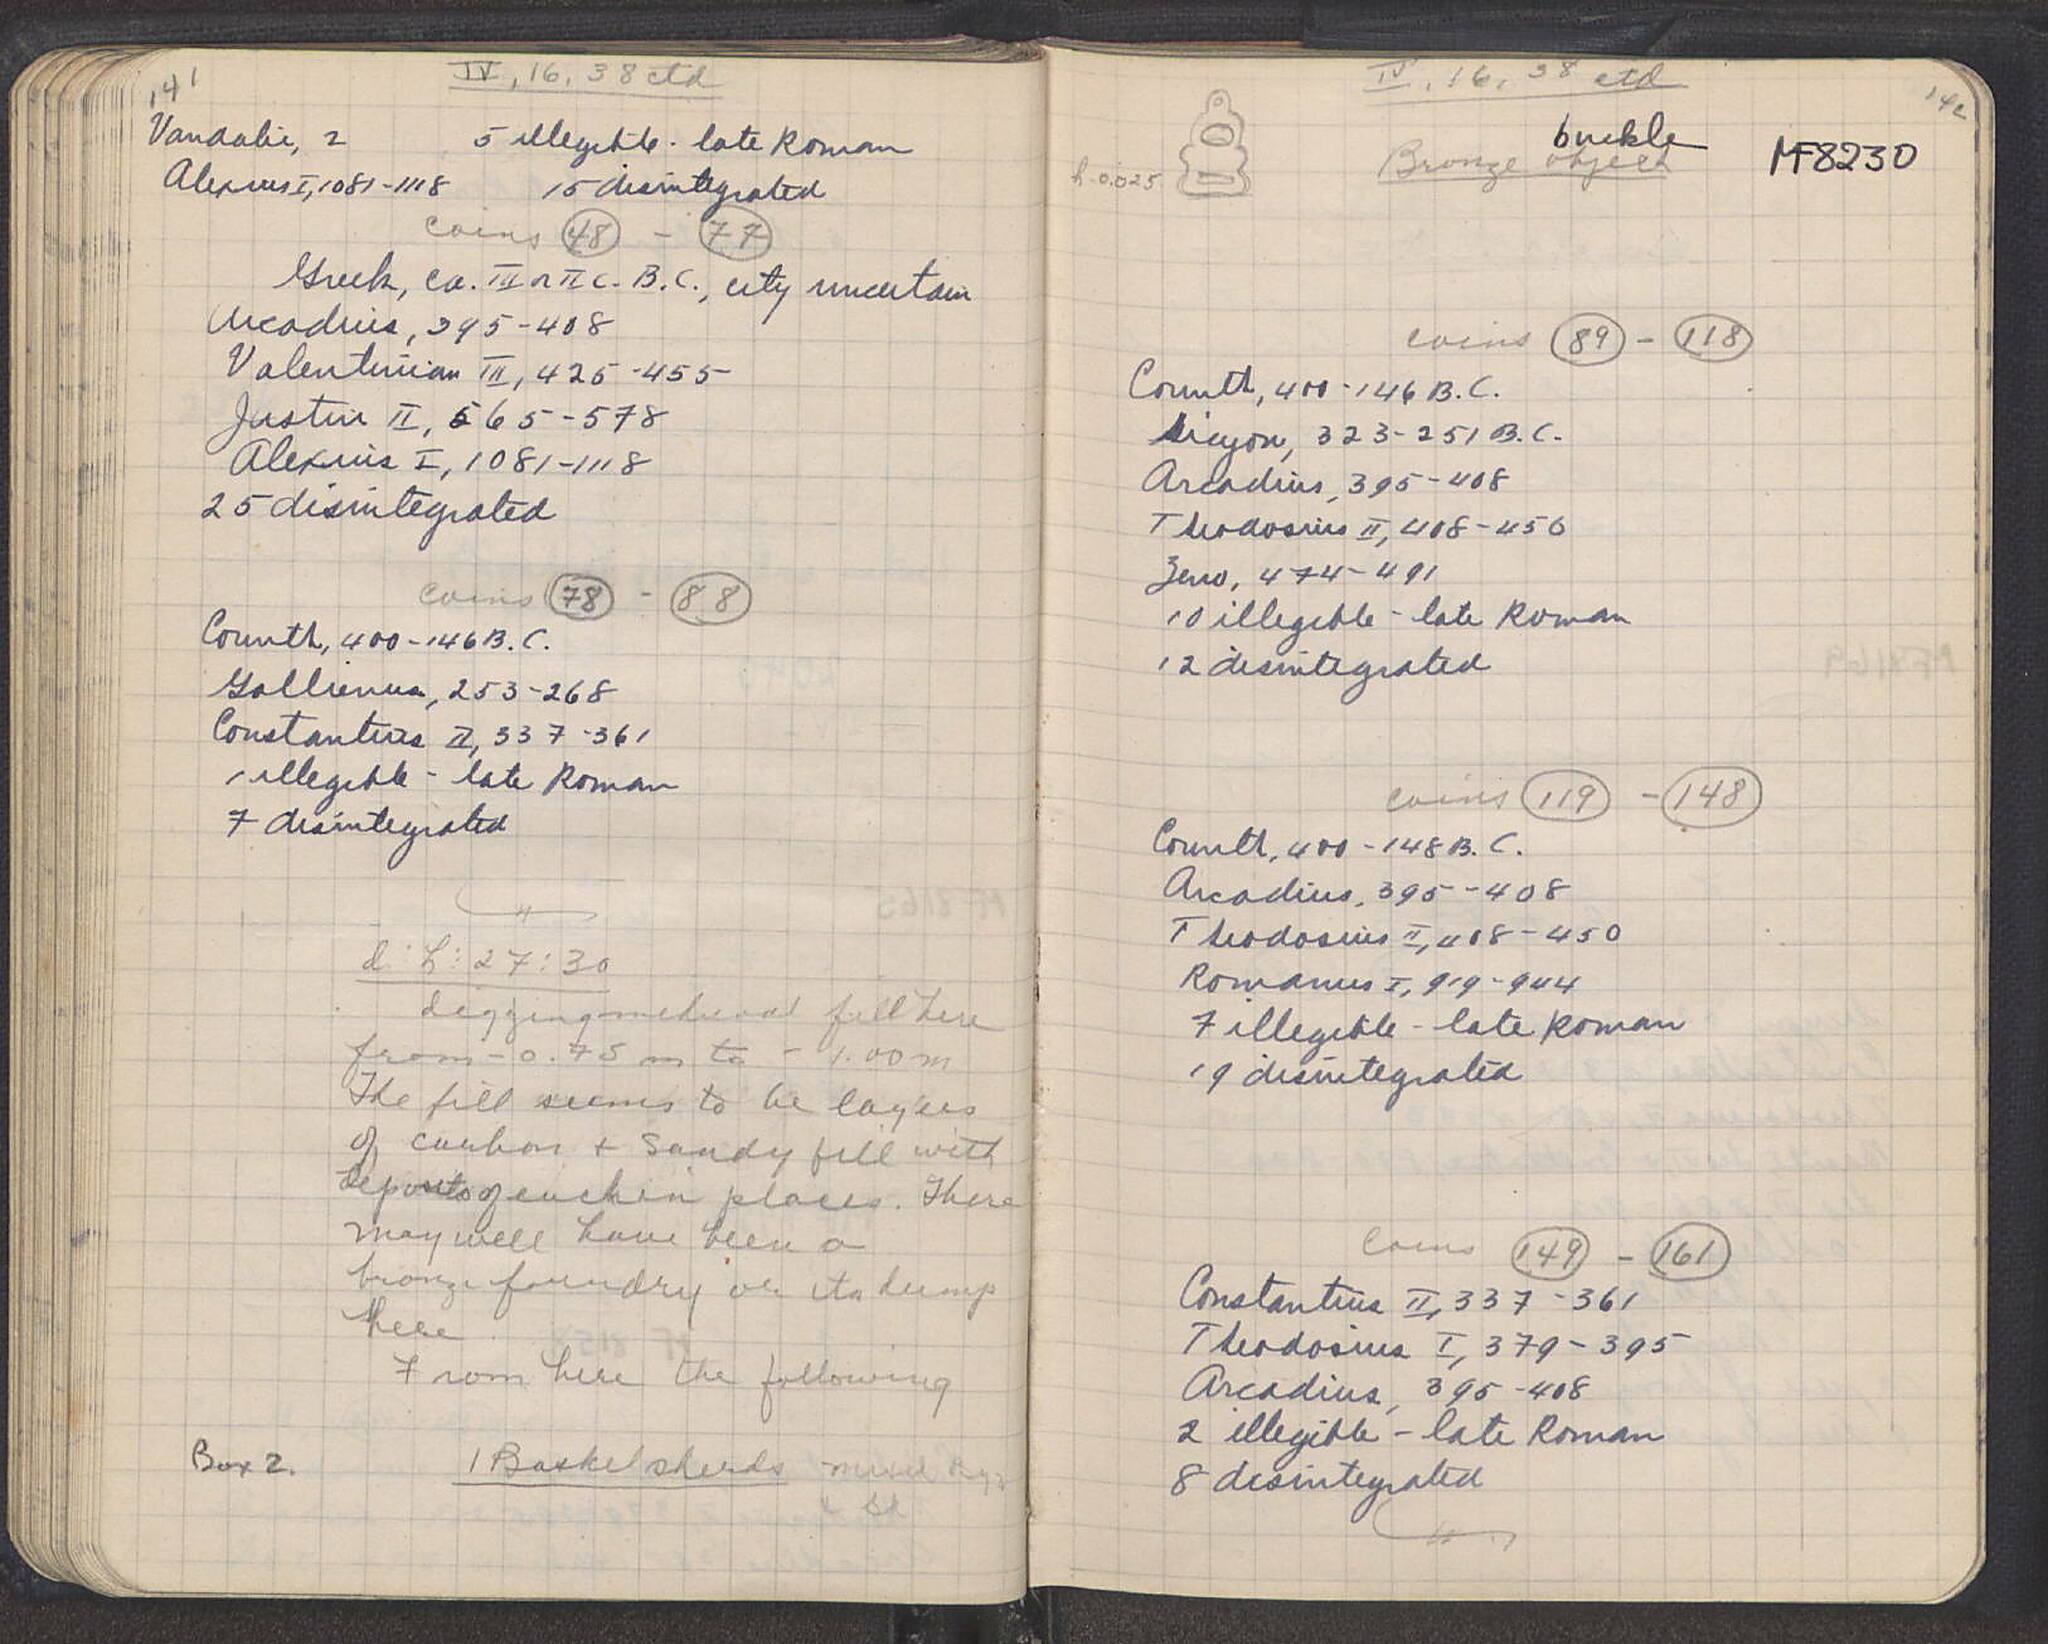 141
IV, 16, 38 ctd
Vandalic, 2 5 illegible - late Roman
Alexius I, 1081-1118 15 disintegrated
coins 48 - 77
Greek, ca. III or II c. B.C., city uncertain
Arcadius, 395-408
Valentinian III, 425-455
Justin II, 565-578
Alexius I, 1081-1118
25 disintegrated
coins 78 - 88
Corinth, 400-146 B.C.
Gallienus, 253-268
Constantius II, 337-361
1 illegible - late Roman
7 disintegrated
d:h:27:30
digging mediaeval fill here
from -0.75 m to -1.00 m
The fill seems to be layers
of carbon + sandy fill with
deposits of each in places. There
may well have been a
bronze foundry or its dump
here
From here the following
Box 2. 1 Basket sherds mixed Byz
IV, 16, 38 ctd
142
h-0.025
buckle
Bronze object MF8230
coins 89 - 118
Corinth, 400-146 B.C.
Sicyon, 323-251 B.C.
Arcadius, 395-408
Theodosius II, 408-450
Zeno, 474-491
10 illegible - late Roman
12 disintegrated
coins 119 - 148
Corinth, 400-148 B.C.
Arcadius, 395-408
Theodosius II, 408-450
Romanus I, 919-944
7 illegible - late Roman
19 disintegrated
Coins 149 - 161
Constantius II, 337-361
Theodosius I, 379-395
Arcadius, 395-408
2 illegible - late Roman
8 disintegrated